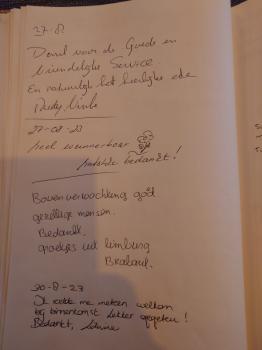 27-8
voor de Goede en
Vriendelijke Service
En natuurlijk het heerlijke eten
27-08-23
heel
bedankt!
Boven verwachting goed
gezellige mensen.
Bedankt.
groetjes uit limburg
Brabant.
20-8-23
Ik voelde me meteen welkom
bij binnenkomst Lekker gegeten!
Bedankt,